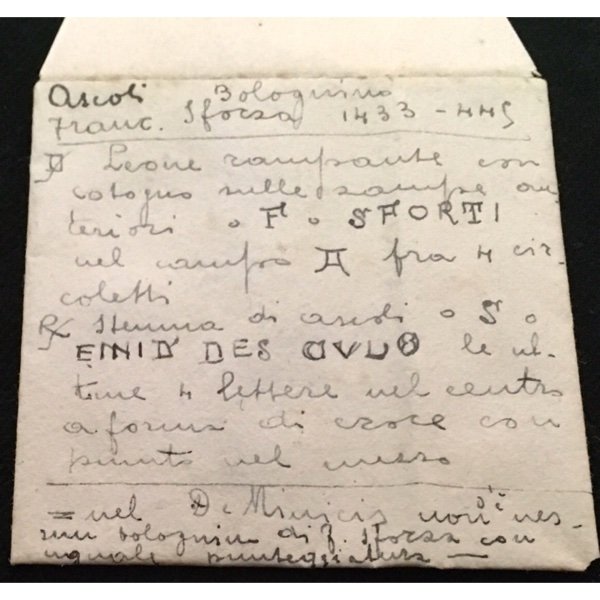 Ascoli Bolognini
Franc. Sforza 1433-445
D Leone rampante con
cotogno sulle zampe an
teriori o F o SFORTI
nel campo A fra 4 cir-
coletti
R Stemma di ascoli o S o
EINID DES CVLO le ul-
time 4 lettere nel centro
a forma di croce con
punto nel mezzo
= nel De Minicis non c'è nes-
sun bolognino di F. Sforza con
uguale punteggiatura —